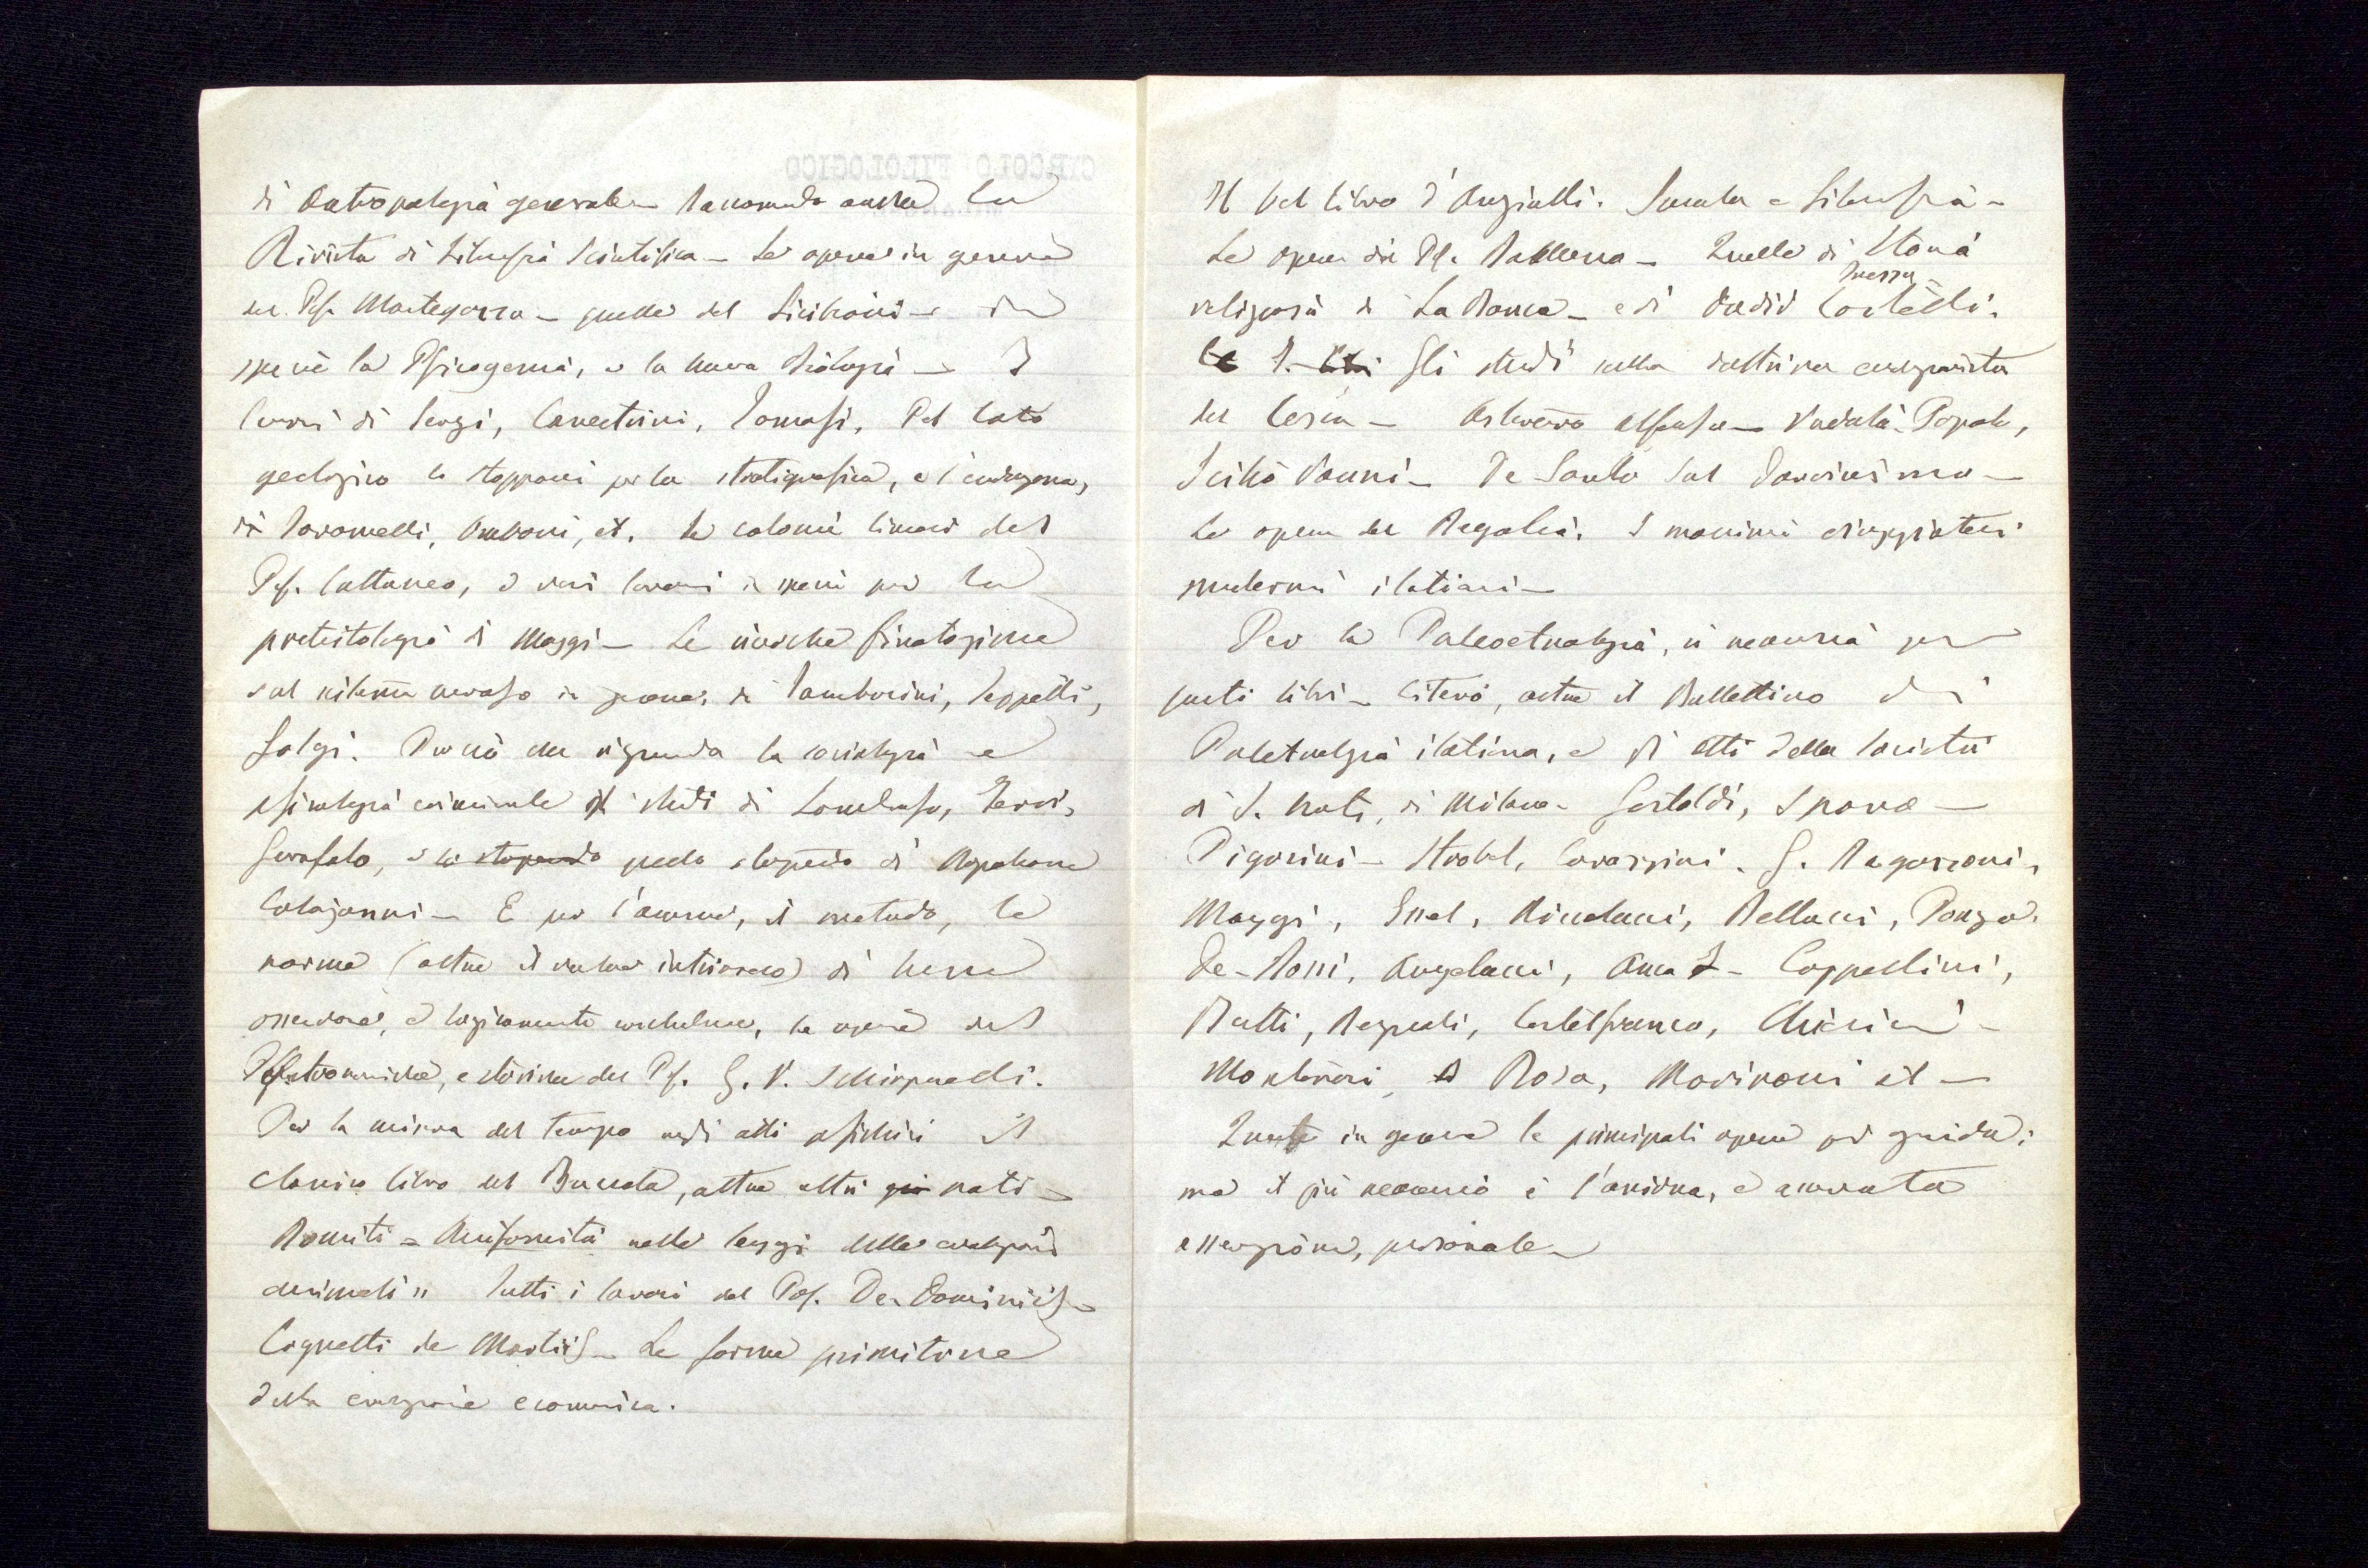 di Antropologia generale – Raccomando anche la
Rivista di Filosofia Scientifica – Le opere in genere
del Pf. Mantegazza – quelle del Siciliani – e in
specie la Psicogenia, e la nuova Biologia – I
lavori di Sergi, Canestrini, Tomasi. Pel lato
geologico lo Stoppani per la stratigrafica, e l'endogena,
di Taramelli, Omboni, et. Le colonie lineari del
Pf. Cattaneo, e vari lavori in specie per la
protistologia di Maggi – Le ricerche fisiologiche
sul sistema nervoso in genere, di Tamburini, Seppelli,
Golgi. Per ciò che riguarda la sociologia e
psicologia criminale gli studi di Lombroso, Ferri,
Garofalo, e lo stupendo quello stupendo di Napoleone
Colajanni – E per l'acume, il metodo, le
norme (oltre il valore intrinseco) di bene
osservare, e logicamente concludere, le opere del
astronomiche, e storiche del Pf. G. V. Schiapparelli.
Per la misura del tempo negli atti psichici il
classico libro del Buccola, oltre altri già noti –
Romiti = Uniformità nelle leggi delle
animali" Tutti i lavori del Pof. De-Dominicis –
Cognetti de Martiis – Le forme primitive
della evoluzione economica.
Il bel libro d'Angiulli. Scuola e Filosofia –
Le opere del Pf. Dalla – Quelle di Storia
religiosa di – e di David Castelli.
Gli studi sulla dottrina evoluzionista
del Cesca – Asturaro Alfonso – Vadalà-Papale,
Icilio Vanni – De Sarlo sul Darvinismo –
Le opere del Regalia. I viaggiatori
moderni italiani –
Per la Paleoetnologia, è necessità per
questi libri – Citerò, oltre il Bullettino di
Paletnologia italiana, e gli Atti della Società
di S. Nat. di Milano – Gastaldi, Spano –
Pigorini – Strobel, Cavazzini. G. Ragazzoni,
Maggi, Issel, Nicolucci, Bellucci, Ponzo.
De-Rossi, Angelucci, – Cappellini,
Botti, Regnoli, Castelfranco, Chierici –
Mantovani, Rosa, Marinoni et –
Queste in genere le principali opere per guida;
ma il più necessario è l'assidua, e accurata
osservazione, personale –